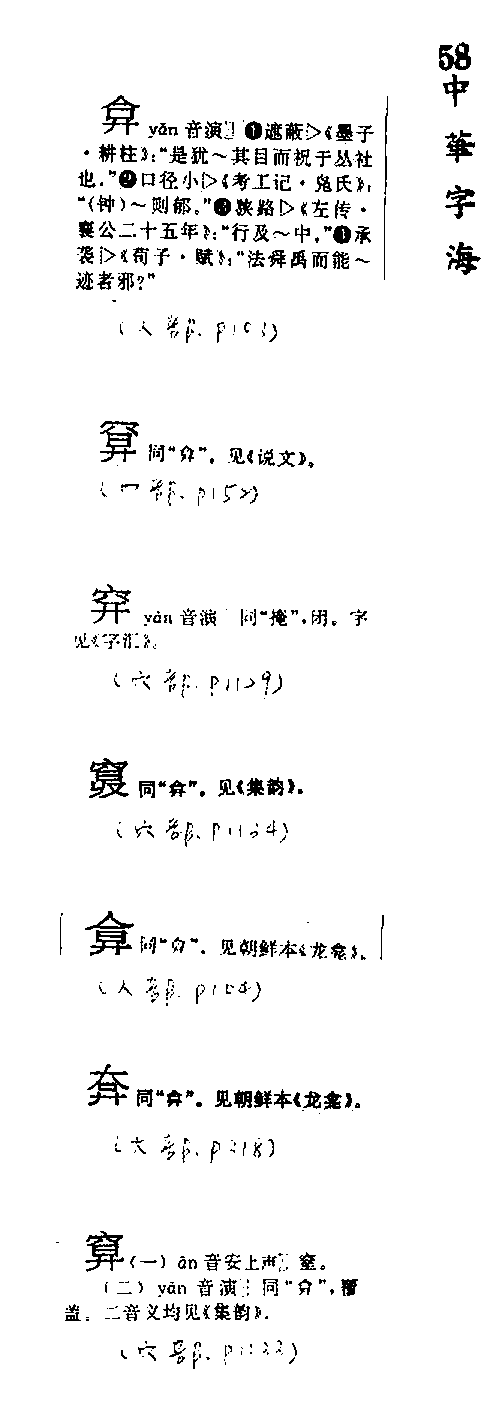 58
中華字海
弇 yǎn 音演 ❶遮蔽▷《墨子
·耕柱》:“是犹～其目而祝于丛社
也。”❷口径小▷《考工记·凫氏》:
“(钟)～则郁。”❸狭路▷《左传·
襄公二十五年》:“行及～中。”❹承
袭▷《荀子·赋》:“法舜禹而能～
迹者邪?”
(人部, P103)
同“弇”。见《说文》。
(冖部, P152)
yǎn 音演 同“掩”,闭。字
见《字汇》。
(穴部, P1129)
同“弇”。见《集韵》。
(穴部, P1134)
同“弇”。见朝鲜本《龙龛》。
(人部, P104)
同“弇”。见朝鲜本《龙龛》。
(大部, P318)
(一) ǎn 音安上声 窒。
(二) yǎn 音演 同“弇”,覆
盖。二音义均见《集韵》。
(穴部, P1133)